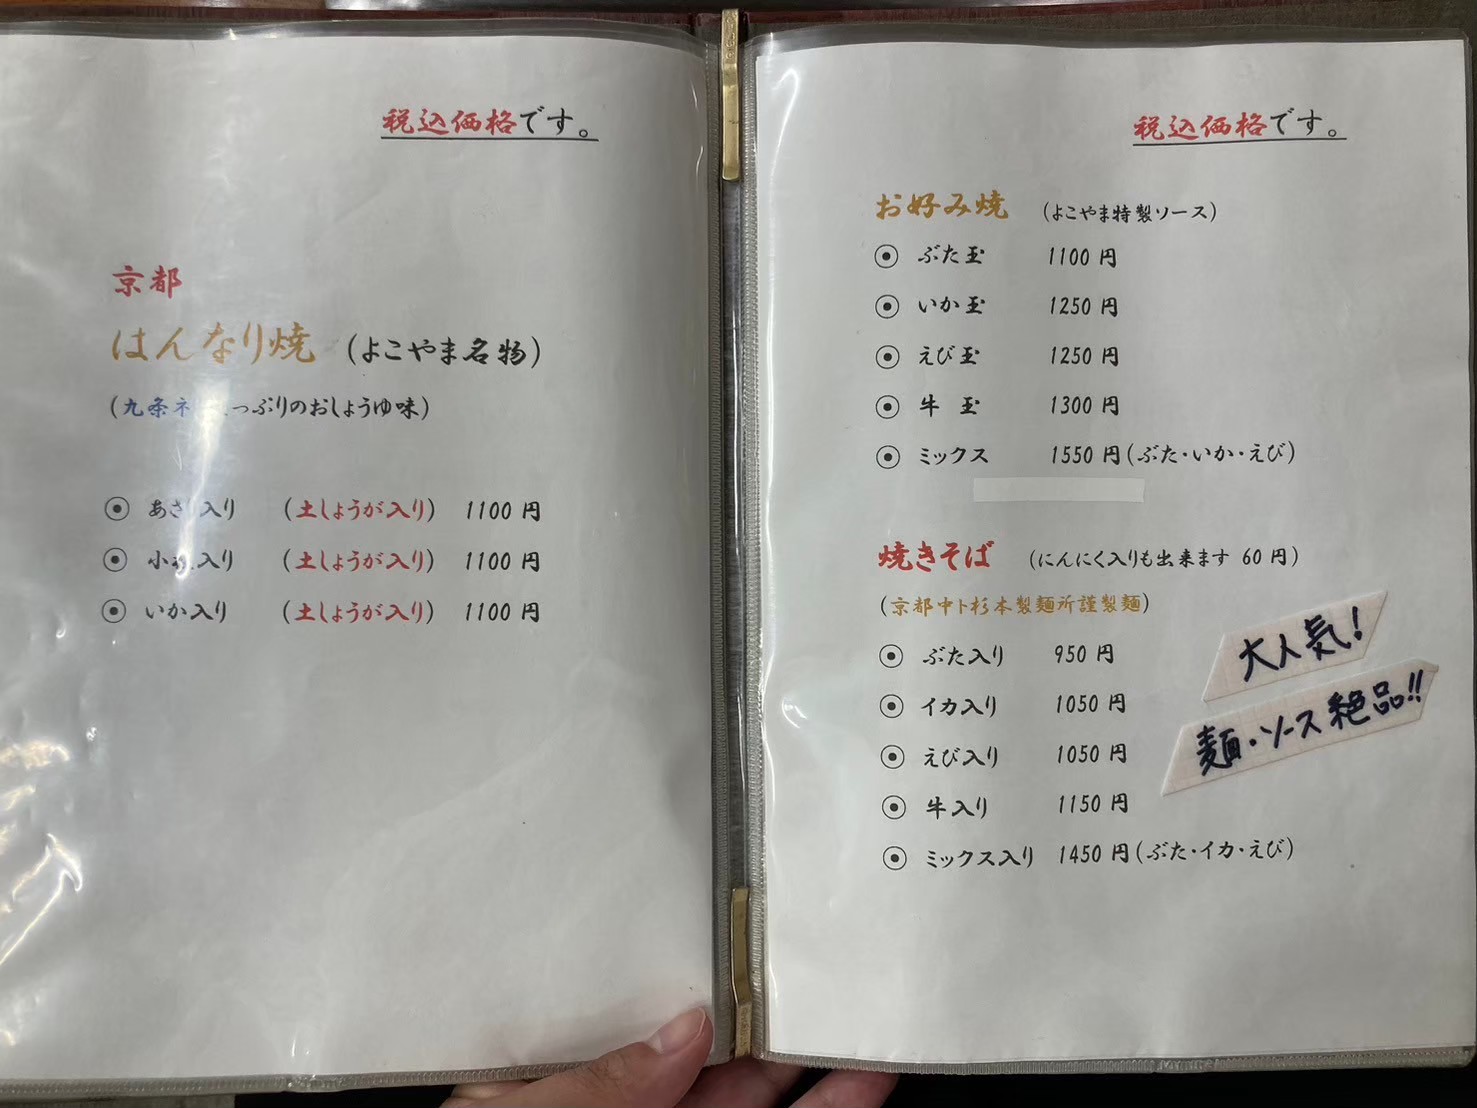 税込価格です。
京都
はんなり焼 (よこやま名物)
(九条ネ っぷりのおしょうゆ味)
◉ あさり入り (土しょうが入り) 1100 円
◉ 小 入り (土しょうが入り) 1100 円
◉ いか入り (土しょうが入り) 1100 円
税込価格です。
お好み焼 (よこやま特製ソース)
◉ ぶた玉 1100 円
◉ いか玉 1250 円
◉ えび玉 1250 円
◉ 牛 玉 1300 円
◉ ミックス 1550 円(ぶた・いか・えび)
焼きそば (にんにく入りも出来ます 60 円)
(京都中ト杉本製麺所謹製麺)
◉ ぶた入り 950 円
◉ イカ入り 1050 円
◉ えび入り 1050 円
◉ 牛入り 1150 円
◉ ミックス入り 1450 円(ぶた・イカ・えび)
大人気!
麺・ソース絶品!!